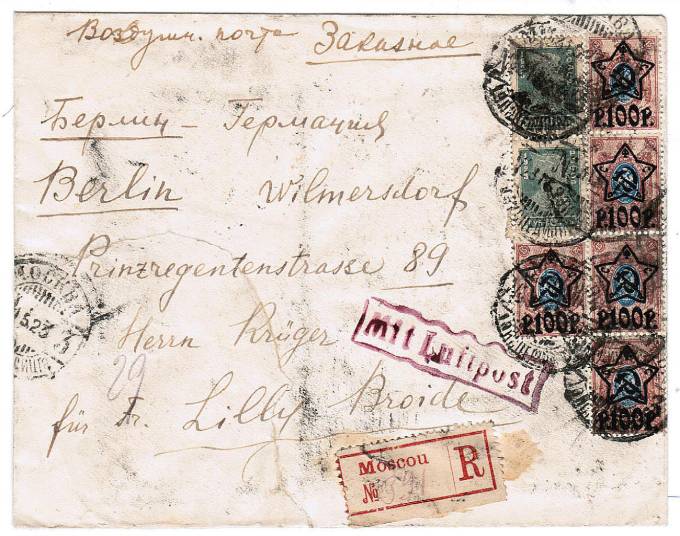 Воздушн. почта Заказное
Берлин - Германия
Berlin Wilmersdorf
Prinzregentenstrasse 89
Herrn Krüger
für Fr. Lilly Broide
29
Mit Luftpost
Moscou
№
R
МОСКВА
5.23
Р.100Р.
Р.100Р.
Р.100Р.
Р.100Р.
Р.100Р.